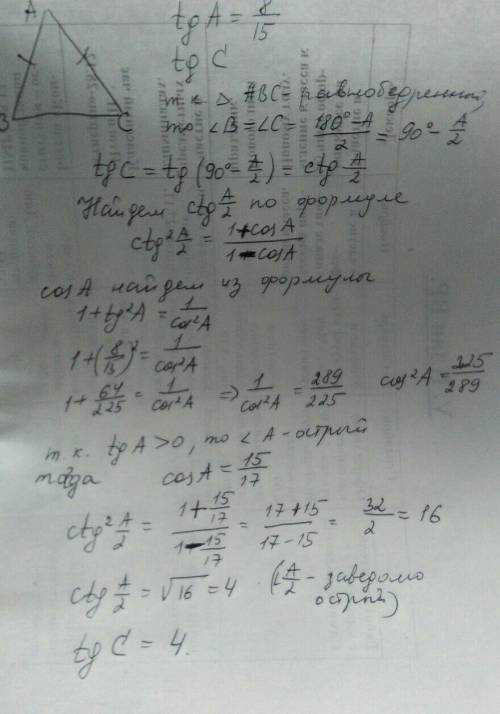 A
B
C
tg A = 8/15
tg C
т.к △ ABC - равнобедренный,
то ∠B = ∠C = (180° - A)/2 = 90° - A/2
tg C = tg (90° - A/2) = ctg A/2
Найдем ctg A/2 по формуле
ctg² A/2 = (1 + cos A)/(1 - cos A)
cos A найдем из формулы
1 + tg² A = 1/cos² A
1 + (8/15)² = 1/cos² A
1 + 64/225 = 1/cos² A ⇒ 1/cos² A = 289/225 cos² A = 225/289
т.к. tg A > 0, то ∠ A - острый
тогда cos A = 15/17
ctg² A/2 = (1 + 15/17)/(1 - 15/17) = (17 + 15)/(17 - 15) = 32/2 = 16
ctg A/2 = √16 = 4 (∠ A/2 - заведомо
острый)
tg C = 4.